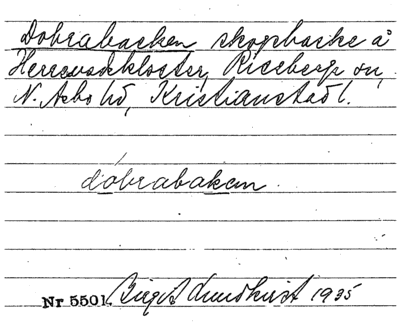 Dobrabacken skogsbacke å
Herrevadskloster, Riseberga sn,
N. Åsbo hd, Kristianstad l.
dobrabakan
Nr 5501. Birgit Lundkvist 1935